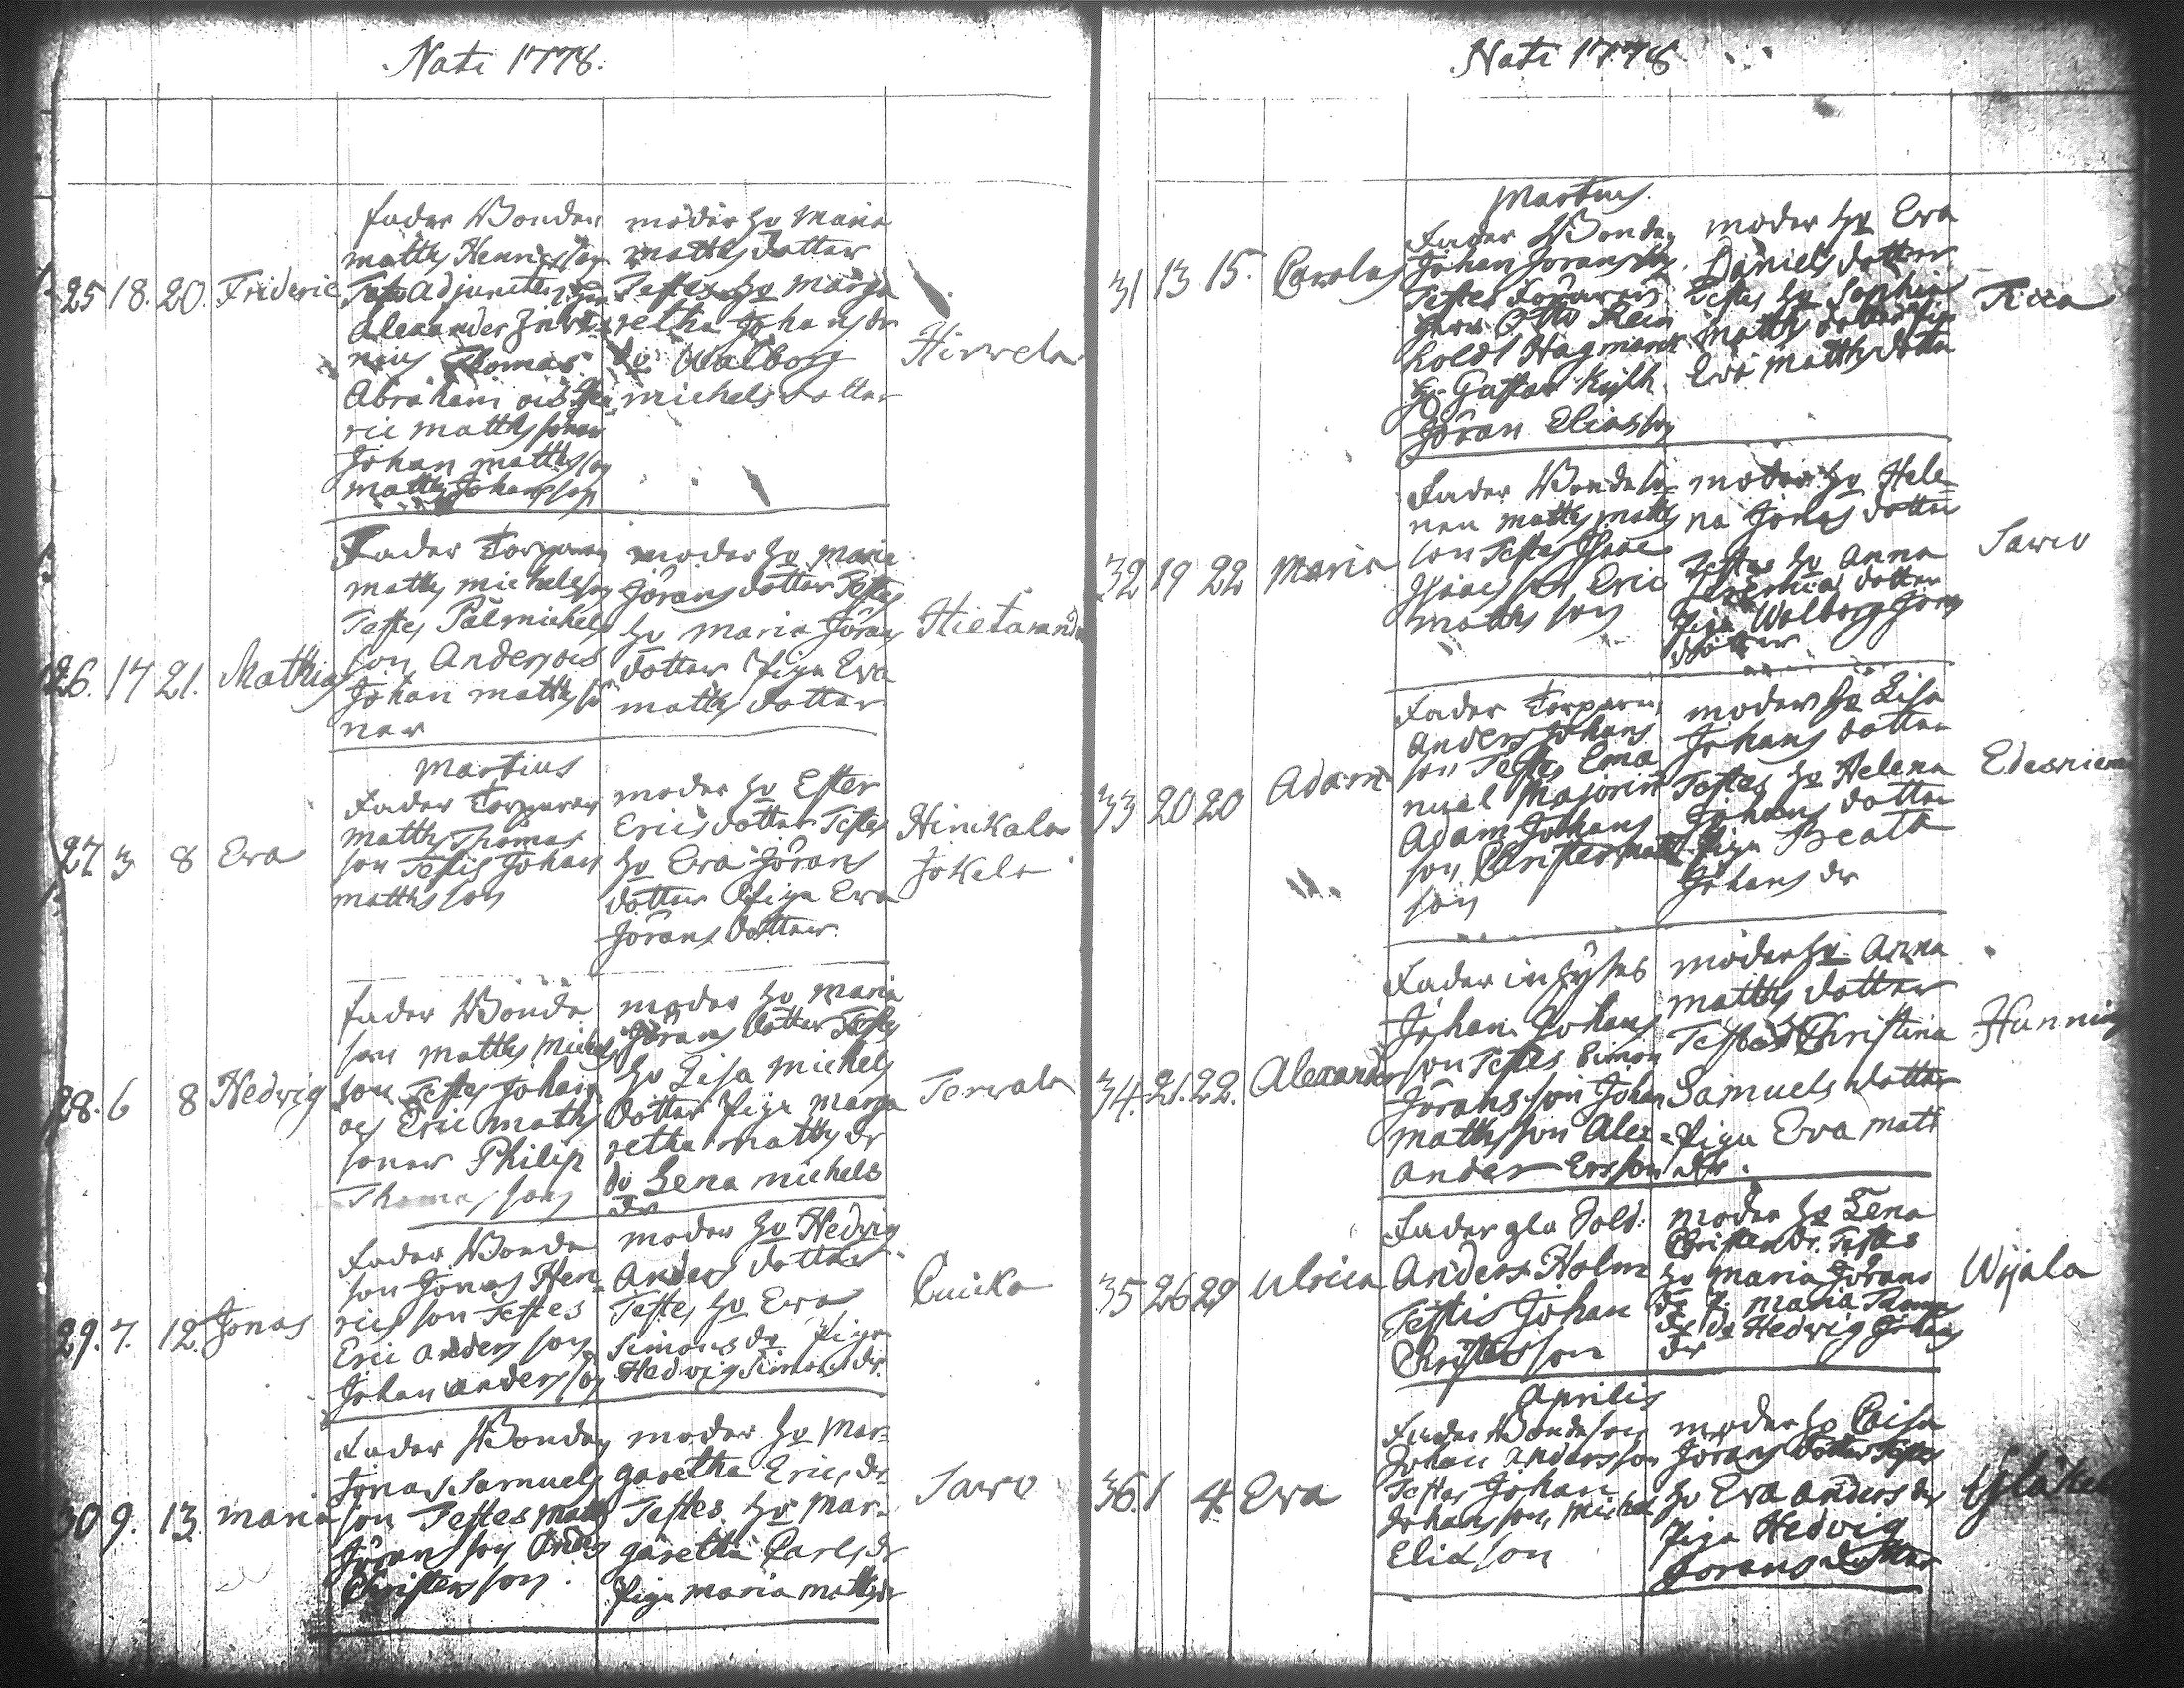 Nati 1778.
25 18. 20. Frideric
Fader Bonden
Matths Henricsson
Testes Adjuncten Herr
Alexander
Thomas
Abraham ock Hen
ric Matths söner
Johan Matthsson
Matths Johansson
moder Hu Maria
Matths dotter
Testes Hu Marga
retha Johans dr
do Walborg
Michels dotter
Hirvela
26. 17 21. Mathias
Fader Torparen
Matths Michelsson
Testes Pål Michels
son Anders ock
Johan Matths sö
ner
moder Hu Maria
Jörans dotter Testes
Hu Maria Jörans
dotter Piga Eva
Matths dotter
Hietaranda
Martius
27 3 8 Eva
Fader Torparen
Matths Thomas
son Testis Johan
Matthsson
moder Hu Ester
Erics dotter Testes
Hu Eva Jörans
dotter Piga Eva
Jörans dotter
Hinikala
Jokela
28. 6 8 Hedvig
Fader Bonde
son Matths Michels
son Testes Johan
och Eric Matths
söner Philip
Thomasson
moder Hu Maria
Jörans dotter Testes
Hu Lisa Michels
dotter Piga Marga
retha Matths dr
do Lena Michels
dr
Tervala
29. 7. 12. Jonas
Fader Bonde
son Jonas Hen-
rics son Testes
Eric Andersson
Johan Andersson
moder Hu Hedvig
Anders dotter
Testes Hu Eva
Simons dr Piga
Hedvig Simons dr.
Cuicka
30 9. 13. Maria
Fader Bonden
Jonas Samuels
son Testes Matts
Jöransson Anders
Christersson.
moder Hu Mar-
garetha Erics dr
Testes Hu Mar-
garetha Carls dr
Piga Maria Matths dr
Sarvo
Nati 1778
Martius.
31 13 15. Carolus
Fader Bonden
Johan Jöransson.
Testes
Herr Otto Rein
holdt Hagman
Hr Gustav
Jöran Eliasson
moder Hu Eva
Daniels dotter
Testes Hu Sophia
Matths dotter Piga
Eva Matths dotter
Ticca
32 19 22 Maria
Fader Bondeso
nen Matths Matths
son Testes Isaac
Isaacsson Eric
Matths son
moder Hu Hele-
na Jonas dotter
Testes Hu Anna
Jeremias dotter
Piga Walborg Jöran
dotter
Sarvo
33 20 20 Adam
Fader Torparen
Anders Johans
son Testes Ema
nuel Majorin
Adam Johans
son Christer Matts
son
moder Hu Lisa
Johans dotter
Testes Hu Helena
Johans dotter
Piga Beata
Johans dr
Edesniemi
34. 21. 22. Alexander
Fader inhyses
Johan Johans
son Testes Simon
Jöransson Johan
Matthsson Alex-
ander Ersson
moder Hu Anna
Matths dotter
Testes Christina
Samuels dotter
Piga Eva Matt
dr.
Hunnin
35 26 29 Ulrica
Fader gla Sold:
Anders Holm
Testis Johan
Christersson
moder Hu Lena
Christer dr. Testes
Hu Maria Jörans
dr P. Maria
dr do Hedvig Johans
dr
Wijala
Aprilis
36. 1 4. Eva
Fader Bondeson
Johan Andersson
Testes Johan
Johansson Michel
Eliasson
moder Hu Caisa
Jörans dotter Testes
Hu Eva Anders dr
Piga Hedvig
Jörans dotter